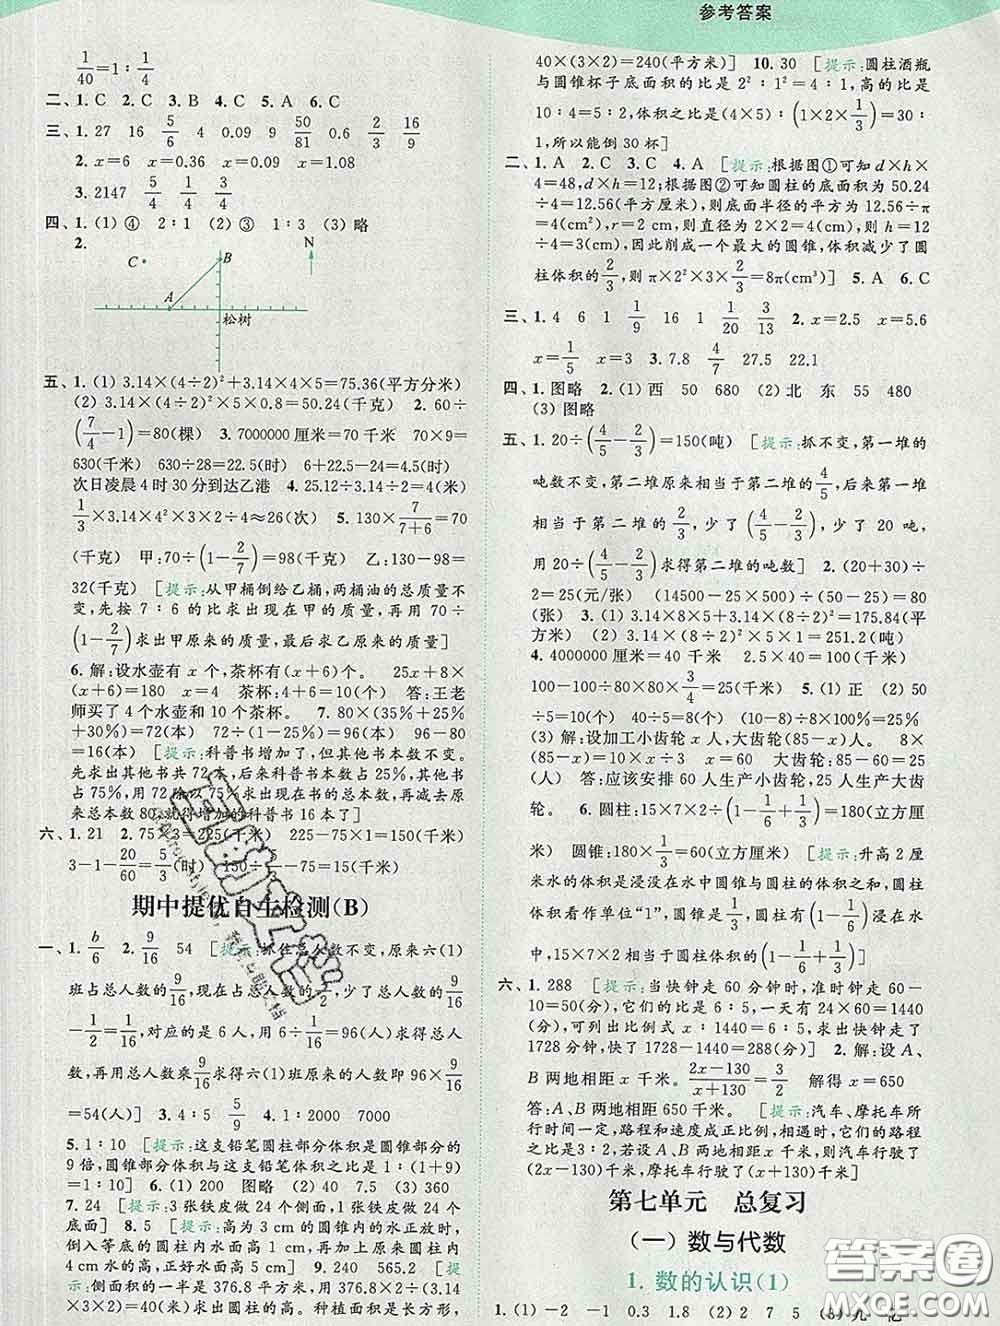 参考答案
1/40=1∶1/4
二、1. C 2. C 3. B 4. C 5. A 6. C
三、1. 27 16 5/6 4 0.09 9 50/81 0.6 2/3 16/9
2. x=6 x=0.36 x=0.09 x=1.08
3. 2147 5/4 1/4 3/4
四、1. (1) ④ 2∶1 (2) ③ 1∶3 (3) 略
2.
C
B
N
A
松树
五、1. (1) 3.14×(4÷2)²+3.14×4×5=75.36(平方分米)
(2) 3.14×(4÷2)²×5×0.8=50.24(千克) 2. 60÷
(7/4-1)=80(棵) 3. 7000000 厘米=70 千米 70×9=
630(千米) 630÷28=22.5(时) 6+22.5-24=4.5(时)
次日凌晨 4 时 30 分到达乙港 4. 25.12÷3.14÷2=4(米)
1/3×3.14×4²×2÷4≈26(次) 5. 130×7/(7+6)=70
(千克) 甲:70÷(1-2/7)=98(千克) 乙:130-98=
32(千克) [提示:从甲桶倒给乙桶,两桶油的总质量不
变,先按 7∶6 的比求出现在甲的质量,再用 70÷
(1-2/7)求出甲原来的质量,最后求乙原来的质量]
6. 解:设水壶有 x 个,茶杯有(x+6)个。 25x+8×
(x+6)=180 x=4 茶杯:4+6=10(个) 答:王老
师买了 4 个水壶和 10 个茶杯。 7. 80×(35%+25%
+30%)=72(本) 72÷(1-25%)=96(本) 96-80
=16(本) [提示:科普书增加了,但其他书本数不变。
先求出其他书共 72 本,后来科普书本数占 25%,其他书
占 75%,用 72 除以 75%求出现在书的总本数,再减去原
来总本数 80,就得增加的科普书 16 本了]
六、1. 21 2. 75×3=225(千米) 225-75×1=150(千米)
3-1-20/60=5/3(时) 150÷ -75=15(千米)
期中提优自主检测(B)
一、1. b/6 2. 9/16 54 [提示:抓住总人数不变,原来六(1)
班占总人数的9/16,现在占总人数的 ,少了总人数的9/16
-1/2=1/16,对应的是 6 人,用 6÷1/16=96(人)求得总人
数,再用总人数乘9/16求得六(1)班原来的人数即 96×9/16
=54(人)] 3. 4∶5 5/9 4. 1∶2000 7000
5. 1∶10 [提示:这支铅笔圆柱部分体积是圆锥部分的
9 倍,圆锥部分体积与这支铅笔体积之比是 1∶(1+9)
=1∶10] 6. (1) 200 图略 (2) 40 (3) 360
7. 24 [提示:3 张铁皮做 24 个侧面,1 张铁皮做 24 个
底面] 8. 5 [提示:高为 3 cm 的圆锥内的水正放时,
倒入等底的圆柱内水面高 1 cm,加上原来圆柱内水高
4 cm,正好水面高 5 cm] 9. 240 565.2 [提示:
侧面积的一半是 376.8 平方厘米,用 376.8×2÷(3.14
×3×2)=40(米)求出圆柱的高。拼成长方体,表面积是长方形,
40×(3×2)=240(平方米)] 10. 30 [提示:圆柱酒瓶
与圆锥杯子底面积的比是 2²∶1²=4∶1,高的比是
10∶4=5∶2,体积之比是(4×5)∶(1×2×1/3)=30∶
1,所以能倒 30 杯]
二、1. A 2. C 3. C 4. A [提示:根据图①可知 d×h×
4=48,d×h=12;根据图②可知圆柱的底面积为 50.24
÷4=12.56(平方厘米),则底面半径的平方为 12.56÷π
=4(cm²),r=2 cm,则直径为 2×2=4(cm),则 h=12
÷4=3(cm),因此削成一个最大的圆锥,体积减少了圆
柱体积的2/3,则 π×2²×3×2/3=8π(cm³)] 5. A 6. C
三、1. 4 6 1 1/9 16 1 1/20 3/13 2. x=2.5 x=5.6
x=1/5 x=4 3. 7.8 4/7 27.5 22.1
四、1. 图略 2. (1) 西 50 680 (2) 北 东 55 480
(3) 图略
五、1. 20÷(4/5-2/3)=150(吨) [提示:抓不变,第一堆的
吨数不变,第二堆原来相当于第一堆的4/5,后来第一堆
相当于第二堆的2/3,少了(4/5-2/3),少了 20 吨,
用 20÷(4/5-2/3)求得第二堆的吨数] 2. (20+30)÷
2=25(元/张) (14500-25×500)÷(50-25)=80
(张) 3. (1) 3.14×8×5+3.14×(8÷2)²=175.84(平
方米) (2) 3.14×(8÷2)²×5×1=251.2(吨)
4. 4000000 厘米=40 千米 2.5×40=100(千米)
100-100÷80×80×3/4=25(千米) 5. (1) 正 (2) 50
÷5=10(个) 40÷5=8(个) (10-8)÷8×100%=25%
(3) 解:设加工小齿轮 x 人,大齿轮(85-x)人。 8×
(85-x)×3=10x x=60 大齿轮:85-60=25
(人) 答:应该安排 60 人生产小齿轮,25 人生产大齿
轮。 6. 圆柱:15×7×2÷(1-1/6+1/3)=180(立方厘
米) 圆锥:180×1/3=60(立方厘米) [提示:升高 2 厘
米水的体积是浸没在水中圆锥与圆柱的体积和,圆柱
体积看作单位“1”,圆柱体积的(1-1/6)浸在水
中,15×7×2 相当于圆柱体积的(1-1/6+1/3)]
六、1. 288 [提示:当快钟走 60 分钟时,准时钟走了 60
-10=50(分),它们的比是 6∶5,一天有 24×60=1440
(分),可列出比例式 x∶1440=6∶5,求出快钟走了
1728 分钟,快了 1728-1440=288(分)] 2. 解:设 A、
B 两地相距 x 千米。 (2x-130)/(x+130)=3/2 解得 x=650
答:A、B 两地相距 650 千米。 [提示:汽车、摩托车所行
时间一定,路程和速度成正比例,相遇时,它们的路程
之比是 3∶2;若设 A、B 两地相距 x 千米,则汽车行驶了
(2x-130)千米,摩托车行驶了(x+130)千米]
第七单元 总复习
(一) 数与代数
1. 数的认识(1)
1. (1) -2 -1 0.3 1.8 (2) 2 7 5 (3) 九 亿
答案圈
MXQE.COM